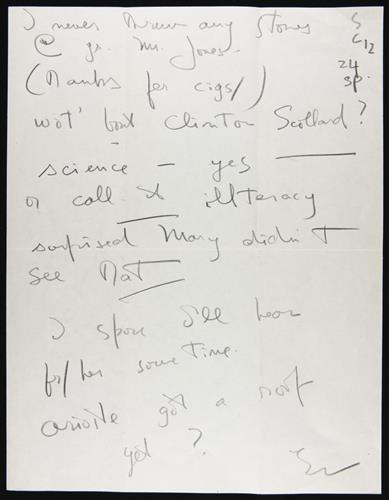 I never threw any stones
@ yr. Mr. Jones.
(Thanks for cigs/)
wot' bout Clinton Scollard?
science — yes
or call it illteracy
surprised Mary didn't
see that
I spose I'll hear
fr/ her some time.
got a roof
yet?
S
C12
24
sp.